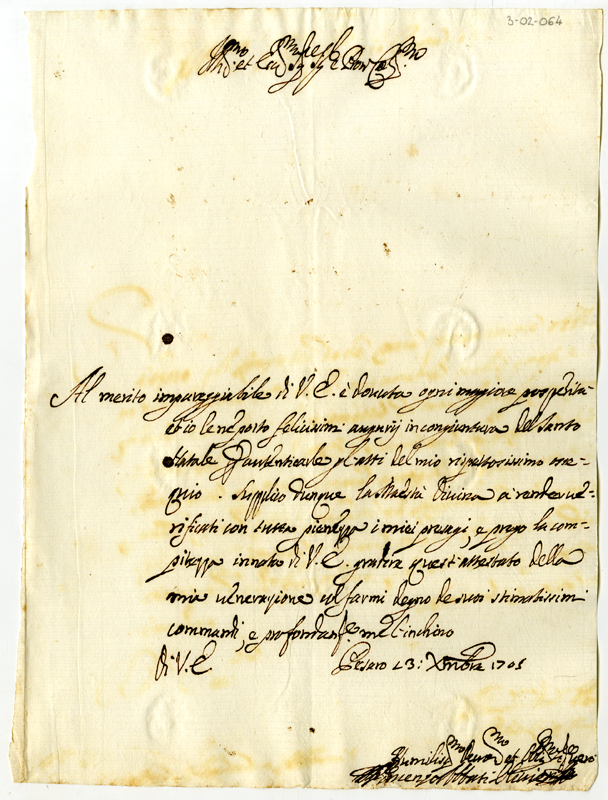 3-02-064
Ill.mo et Ecc.mo
Al merito impareggiabile di V.E. è dovuta ogni maggiore prosperità
et io le ne porto felicissimi augurij in congiuntura del Santo
Natale p autenticarle gl'atti del mio rispettosissimo osse=
quio. Supplico dunque la Maestà Divina a render ve=
rificati con tutta pienezza i miei presagi, e prego la com=
pitezza innata di V.E. gradire quest'attestato della
mia venerazione col farmi degno de suoi stimatissimi
commandi, e profondam.e me l'inchino
di V.E. Pesaro 23: Xmbre 1701
Humiliss.mo Devot.mo et